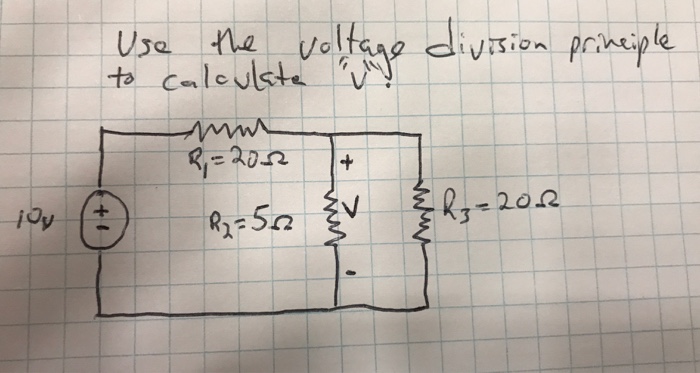 Use the voltage division principle
to calculate "V".
R₁=20Ω
+
10v
+
-
R₂=5Ω
V
R₃=20Ω
-